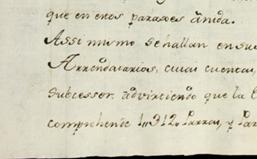 que en enos parages anida.
Assi mismo se hallan en su
Arrendatarios, cuias cuentas,
Subcessor advirciendo que la
comprehende 1,,312,, Parras, y Par